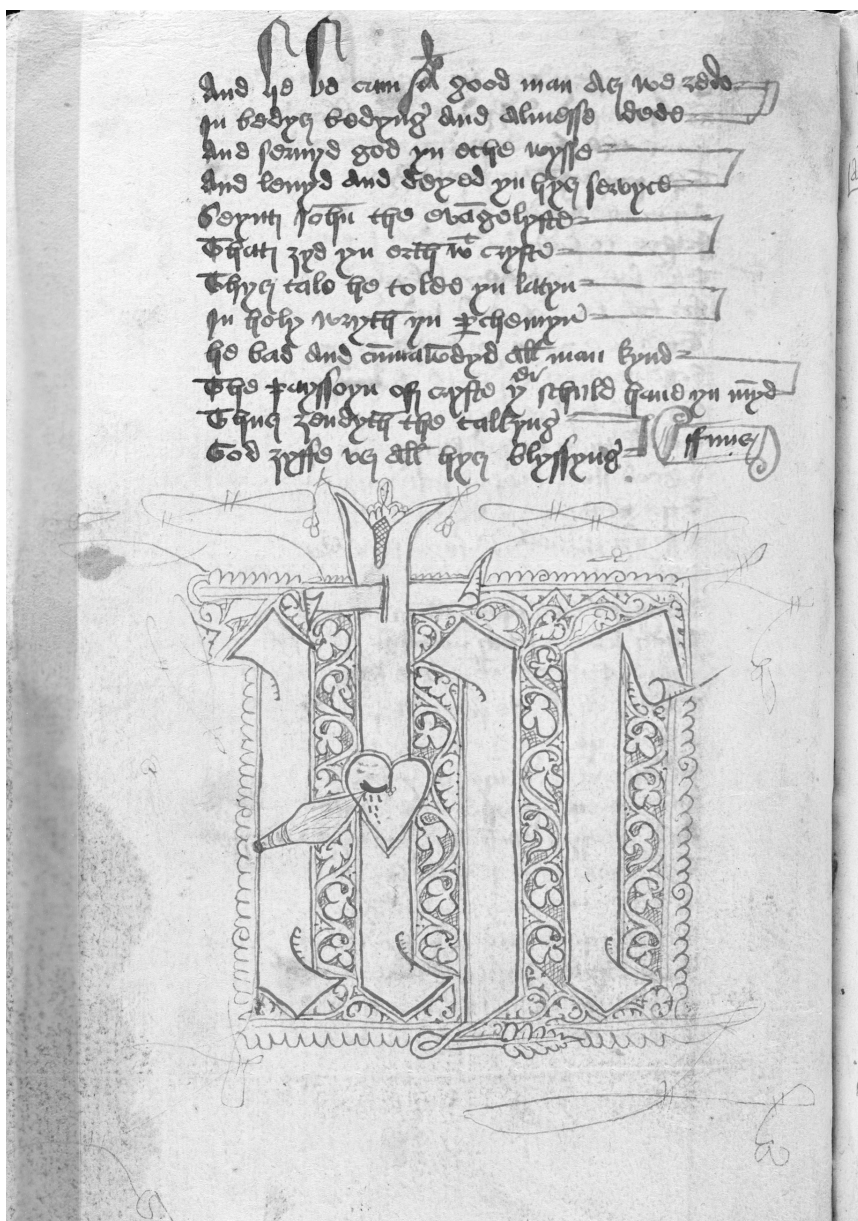 And he be cam so good man as we rede
In bedys bedyng and almesse dede
And servyd god yn eche wysse
And levyd and deyed yn hys servyce
Seynt John̄ the evāgelyste
That ȝyd yn erth wt cryste
Thys tale he tolde yn latyn
In holy wryth yn ꝑchemyn
he bad and cōmawdyd all man kynd
The Passyoyn of cryste yer schuld haue yn mȳd
Thus ȝendyth the talkyng
God ȝyffe vs all hys blyssyng
ffinis